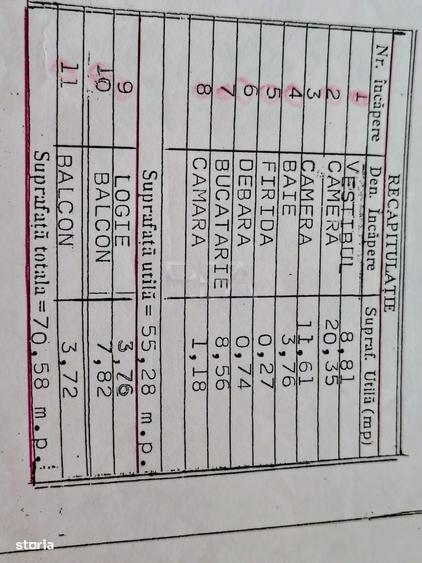 RECAPITULAȚIE
Nr. încăpere Den. Încăpere Supraf. Utilă (mp)
1 VESTIBUL 8,81
2 CAMERA 20,35
3 CAMERA 11,61
4 BAIE 3,76
5 FIRIDA 0,27
6 DEBARA 0,74
7 BUCATARIE 8,56
8 CAMARA 1,18
Suprafață utilă = 55,28 m.p.
9 LOGIE 3,76
10 BALCON 7,82
11 BALCON 3,72
Suprafață totala = 70,58 m.p.
storia